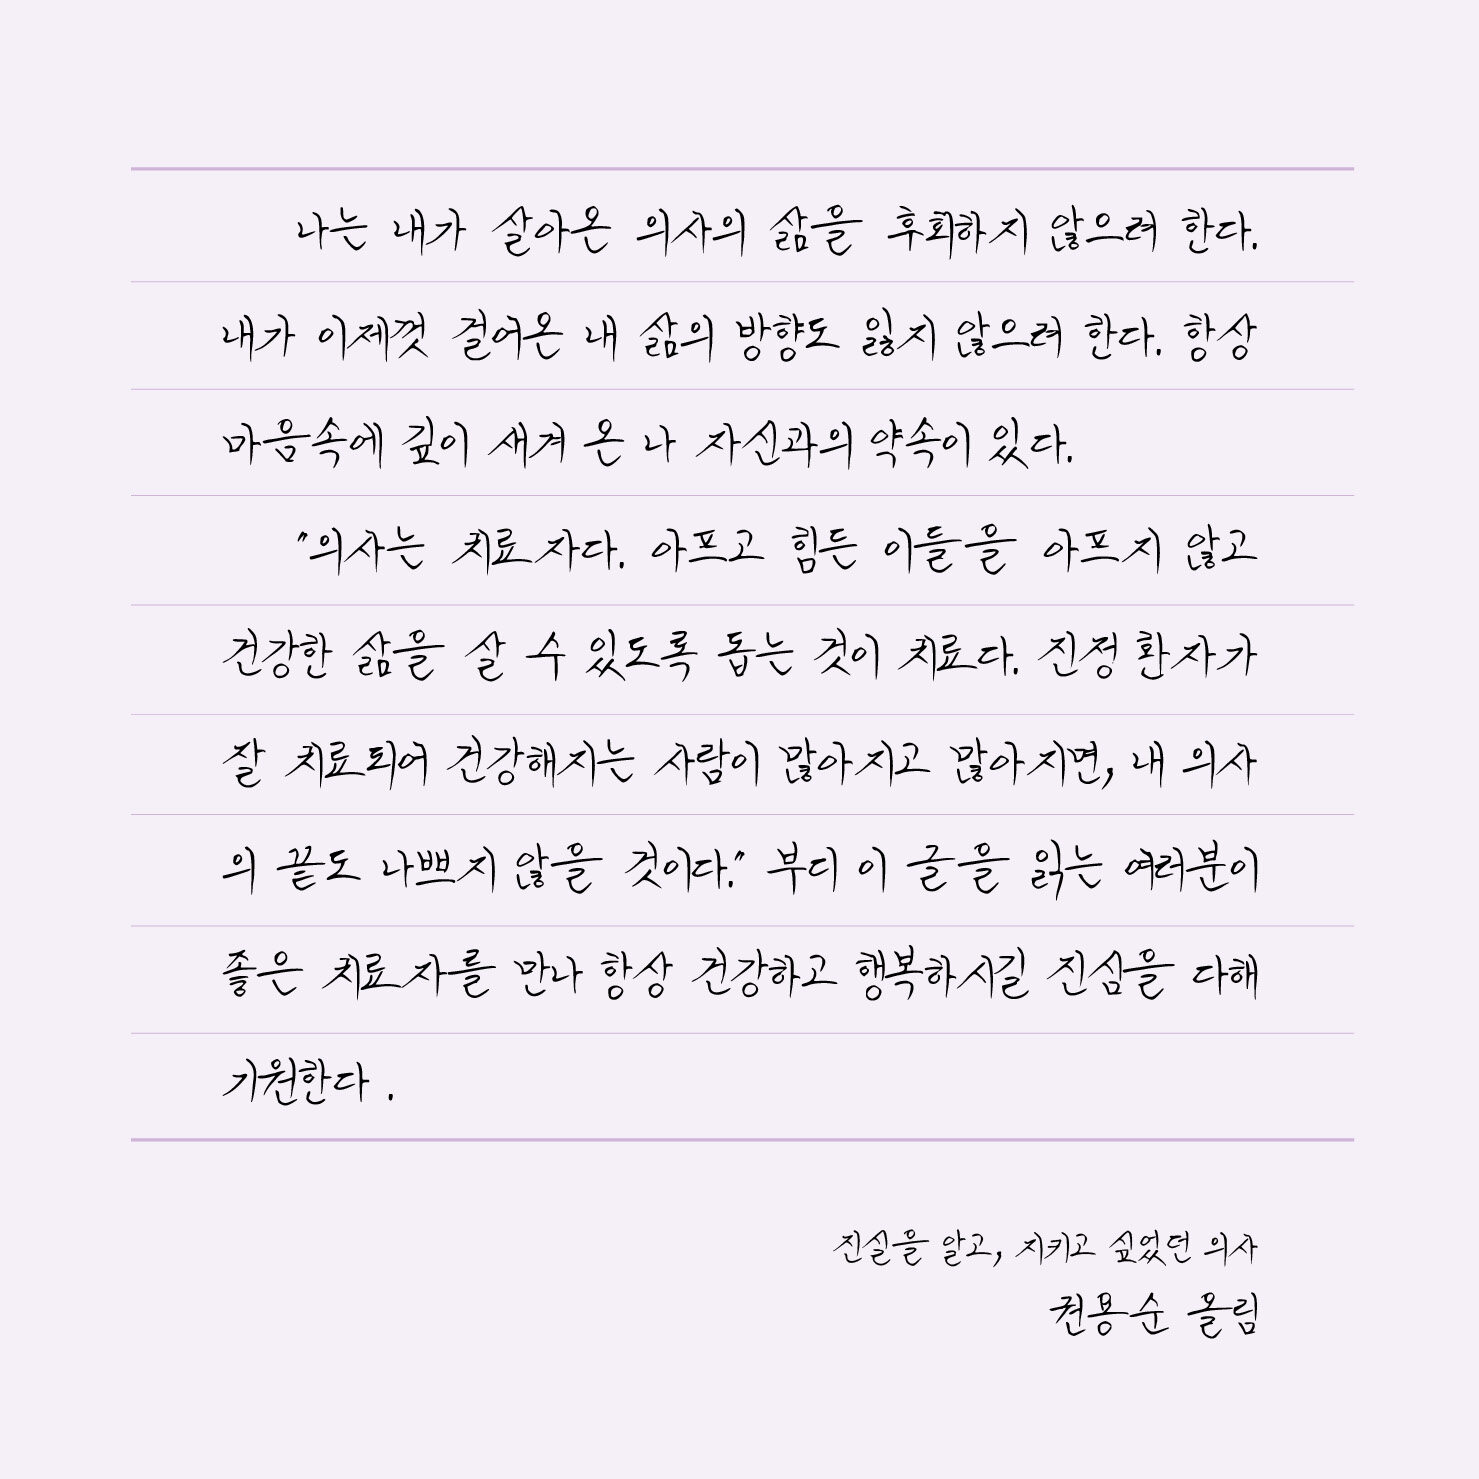 나는 내가 살아온 의사의 삶을 후회하지 않으려 한다.
내가 이제껏 걸어온 내 삶의 방향도 잃지 않으려 한다. 항상
마음속에 깊이 새겨 온 나 자신과의 약속이 있다.
"의사는 치료자다. 아프고 힘든 이들을 아프지 않고
건강한 삶을 살 수 있도록 돕는 것이 치료다. 진정 환자가
잘 치료되어 건강해지는 사람이 많아지고 많아지면, 내 의사
의 끝도 나쁘지 않을 것이다." 부디 이 글을 읽는 여러분이
좋은 치료자를 만나 항상 건강하고 행복하시길 진심을 다해
기원한다.
진실을 알고, 지키고 싶었던 의사
권용순 올림